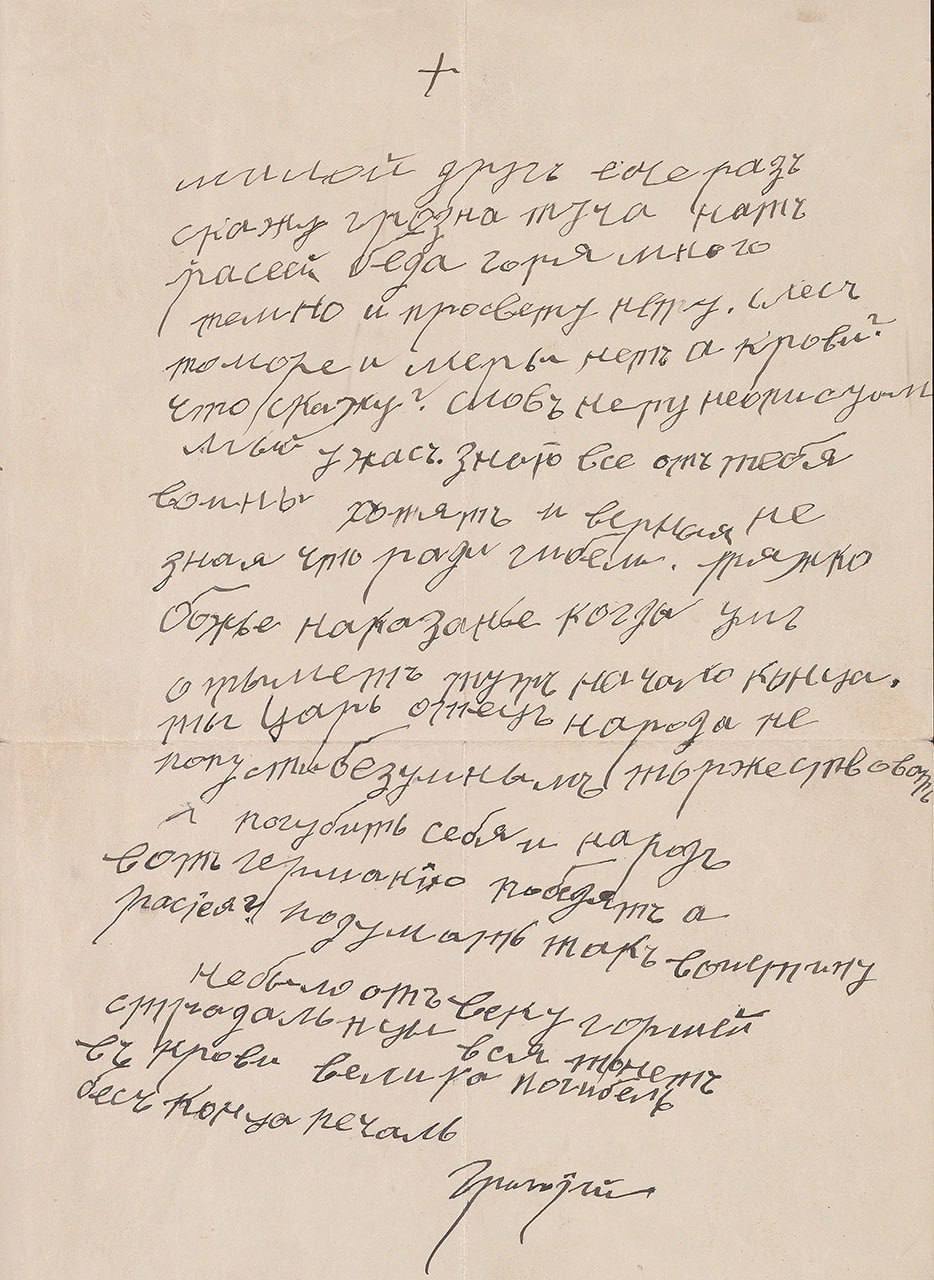 +
милой другъ есче разъ
скажу грозна туча натъ
расеей беда горя много
темно и просвету нету. слесъ
томоре и меры нетъ а крови?
что скажу? словъ нету неописуом
мый ужасъ. знаю все отъ тебя
войны хотятъ и верная не
зная что ради гибели. тяжко
божье наказанье когда умъ
отыметъ тутъ начало конца.
ты царь отецъ народа не
попусти безумнымъ торжествовать
и погубить себя и народъ
вотъ германию победятъ а
расея? подумать такъ воистину
небыло отъ веку горшей
страдальницы вся тонетъ
въ крови велика погибель
бесъ конца печаль
Григорий